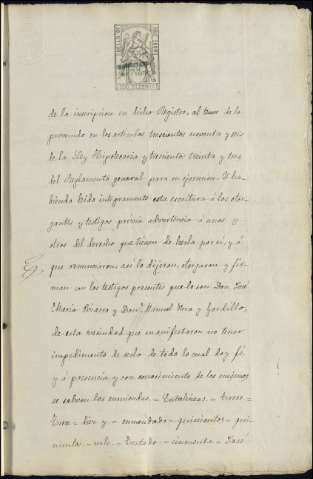 de la inscripcion en dicho Registro, al tenor de lo
prevenido en los articulos trescientos noventa y seis
de la Ley Hipotecaria y trescientos treinta y tres
del Reglamento general para su ejecucion. Y ha-
biendo leido integramente esta escritura á los otor-
gantes y testigos, previa advertencia á unos y
otros del derecho que tienen de leerla por sí, y á
que renunciaron, asi lo dijeron, otorgaron y fir-
man con los testigos presentes que lo son Don José
Maria y Don Manuel Vera y Gordillo,
de esta vecindad que manifestaron no tener
impedimento de serlo de todo lo cual doy fé,
y á presencia y con consentimiento de los mismos
se salvan las enmiendas = Entrelineas =
y enmendado = quinientos =
= Testado = cincuenta = José